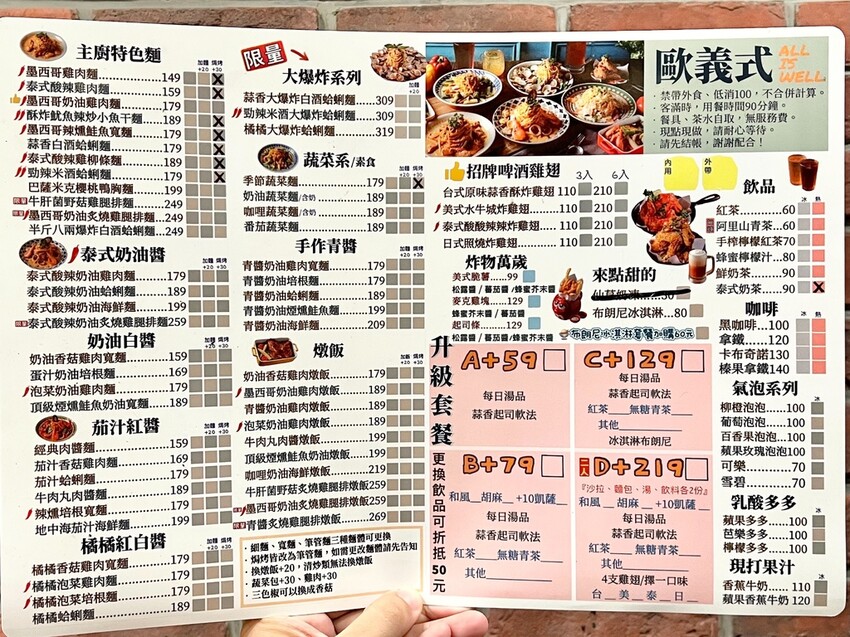 主廚特色麵
加麵 焗烤
+20 +30
墨西哥雞肉麵.............149 X
泰式酸辣雞肉麵..........159 X
墨西哥奶油雞肉麵.......179
酥炸魷魚辣炒小魚干麵...189 X
墨西哥辣燻鮭魚寬麵....189 X
蒜香白酒蛤蜊麵..........179 X
泰式酸辣雞柳條麵.......189 X
勁辣米酒蛤蜊麵..........189 X
巴薩米克櫻桃鴨胸麵....199
限量 牛肝菌野菇雞腿排麵....249
限量 墨西哥奶油炙燒雞腿排麵..249
半斤八兩爆炸白酒蛤蜊麵..249
泰式奶油醬
加麵 焗烤
+20 +30
泰式酸辣奶油雞肉麵....179
泰式酸辣奶油蛤蜊麵....189
泰式酸辣奶油海鮮麵....199
限量 泰式酸辣奶油炙燒雞腿排麵259
奶油白醬
奶油香菇雞肉寬麵.......159
蛋汁奶油培根麵..........169
泡菜奶油雞肉麵..........179
頂級煙燻鮭魚奶油寬麵..189
茄汁紅醬
加麵 焗烤
+20 +30
經典肉醬麵................159
茄汁香菇雞肉麵..........169
茄汁蛤蜊麵................179
牛肉丸肉醬麵.............189
辣燻培根寬麵.............179
地中海茄汁海鮮麵.......199
橘橘紅白醬
加麵 焗烤
+20 +30
橘橘香菇雞肉寬麵.......179
橘橘泡菜雞肉麵..........179
橘橘泡菜培根麵..........179
橘橘蛤蜊麵................189
限量
大爆炸系列
加麵
+20
蒜香大爆炸白酒蛤蜊麵....309
勁辣米酒大爆炸蛤蜊麵....309
橘橘大爆炸蛤蜊麵..........319
蔬菜系/素食
加麵 焗烤
+20 +30
季節蔬菜麵................179 X
奶油蔬菜麵/含奶..........179
咖哩蔬菜麵/含奶..........179
番茄蔬菜麵................179
手作青醬
加麵 焗烤
+20 +30
青醬奶油雞肉寬麵.......179
青醬奶油培根麵..........179
青醬奶油蛤蜊麵..........189
青醬奶油煙燻鮭魚麵....199
青醬奶油海鮮麵..........209
燉飯
加飯 焗烤
奶油香菇雞肉燉飯.......179
墨西哥奶油雞肉燉飯....189
青醬奶油雞肉燉飯.......189
泡菜奶油雞肉燉飯.......189
牛肉丸肉醬燉飯..........199
頂級煙燻鮭魚奶油燉飯..199
咖哩奶油海鮮燉飯.......219
牛肝菌野菇炙燒雞腿排燉飯259
墨西哥奶油炙燒雞腿排燉飯259
青醬炙燒雞腿排燉飯....269
· 細麵、寬麵、筆管麵三種麵體可更換
· 焗烤皆改為筆管麵，如需更改麵體請先告知
· 換燉飯+20，清炒類無法換燉飯
· 蔬菜包+30、雞肉+30
· 三色椒可以換成香菇
歐義式
ALL
IS
WELL
· 禁帶外食、低消100，不合併計算。
· 客滿時，用餐時間90分鐘。
· 餐具、茶水自取，無服務費。
· 現點現做，請耐心等待。
· 請先結帳，謝謝配合！
招牌啤酒雞翅
3入 6入
台式原味蒜香酥炸雞翅 110 210
美式水牛城炸雞翅....110 210
泰式酸酸辣辣炸雞翅 110 210
日式照燒炸雞翅.......110 210
內用
外帶
炸物萬歲
美式脆薯......99
松露醬 / 蕃茄醬 /蜂蜜芥末醬
麥克雞塊......129
蜂蜜芥末醬 / 蕃茄醬
起司條.........129
松露醬 / 蕃茄醬 /蜂蜜芥末醬
來點甜的
布朗尼冰淇淋...80
布朗尼冰淇淋套餐加購60元
飲品
冰 熱
紅茶............60
阿里山青茶...60
手榨檸檬紅茶70
蜂蜜檸檬汁...80
鮮奶茶.........90
泰式奶茶......90 X
咖啡
冰 熱
黑咖啡...100
拿鐵......120
卡布奇諾130
榛果拿鐵140
氣泡系列
冰
柳橙泡泡......100
葡萄泡泡......100
百香果泡泡...100
蘋果玫瑰泡泡100
可樂............70
雪碧............70
乳酸多多
冰
蘋果多多......100
芭樂多多......100
檸檬多多......100
現打果汁
冰
香蕉牛奶......110
蘋果香蕉牛奶 120
升級套餐
更換飲品可折抵50元
A+59
每日湯品
蒜香起司軟法
C+129
每日湯品
蒜香起司軟法
紅茶___無糖青茶___
其他___________
冰淇淋布朗尼
B+79
和風__胡麻__+10凱薩__
每日湯品
蒜香起司軟法
紅茶___無糖青茶___
其他___________
二人 D+219
『沙拉、麵包、湯、飲料各2份』
和風__胡麻__+10凱薩__
每日湯品
蒜香起司軟法
紅茶___無糖青茶___
其他___________
4支雞翅/擇一口味
台__美__泰__日__